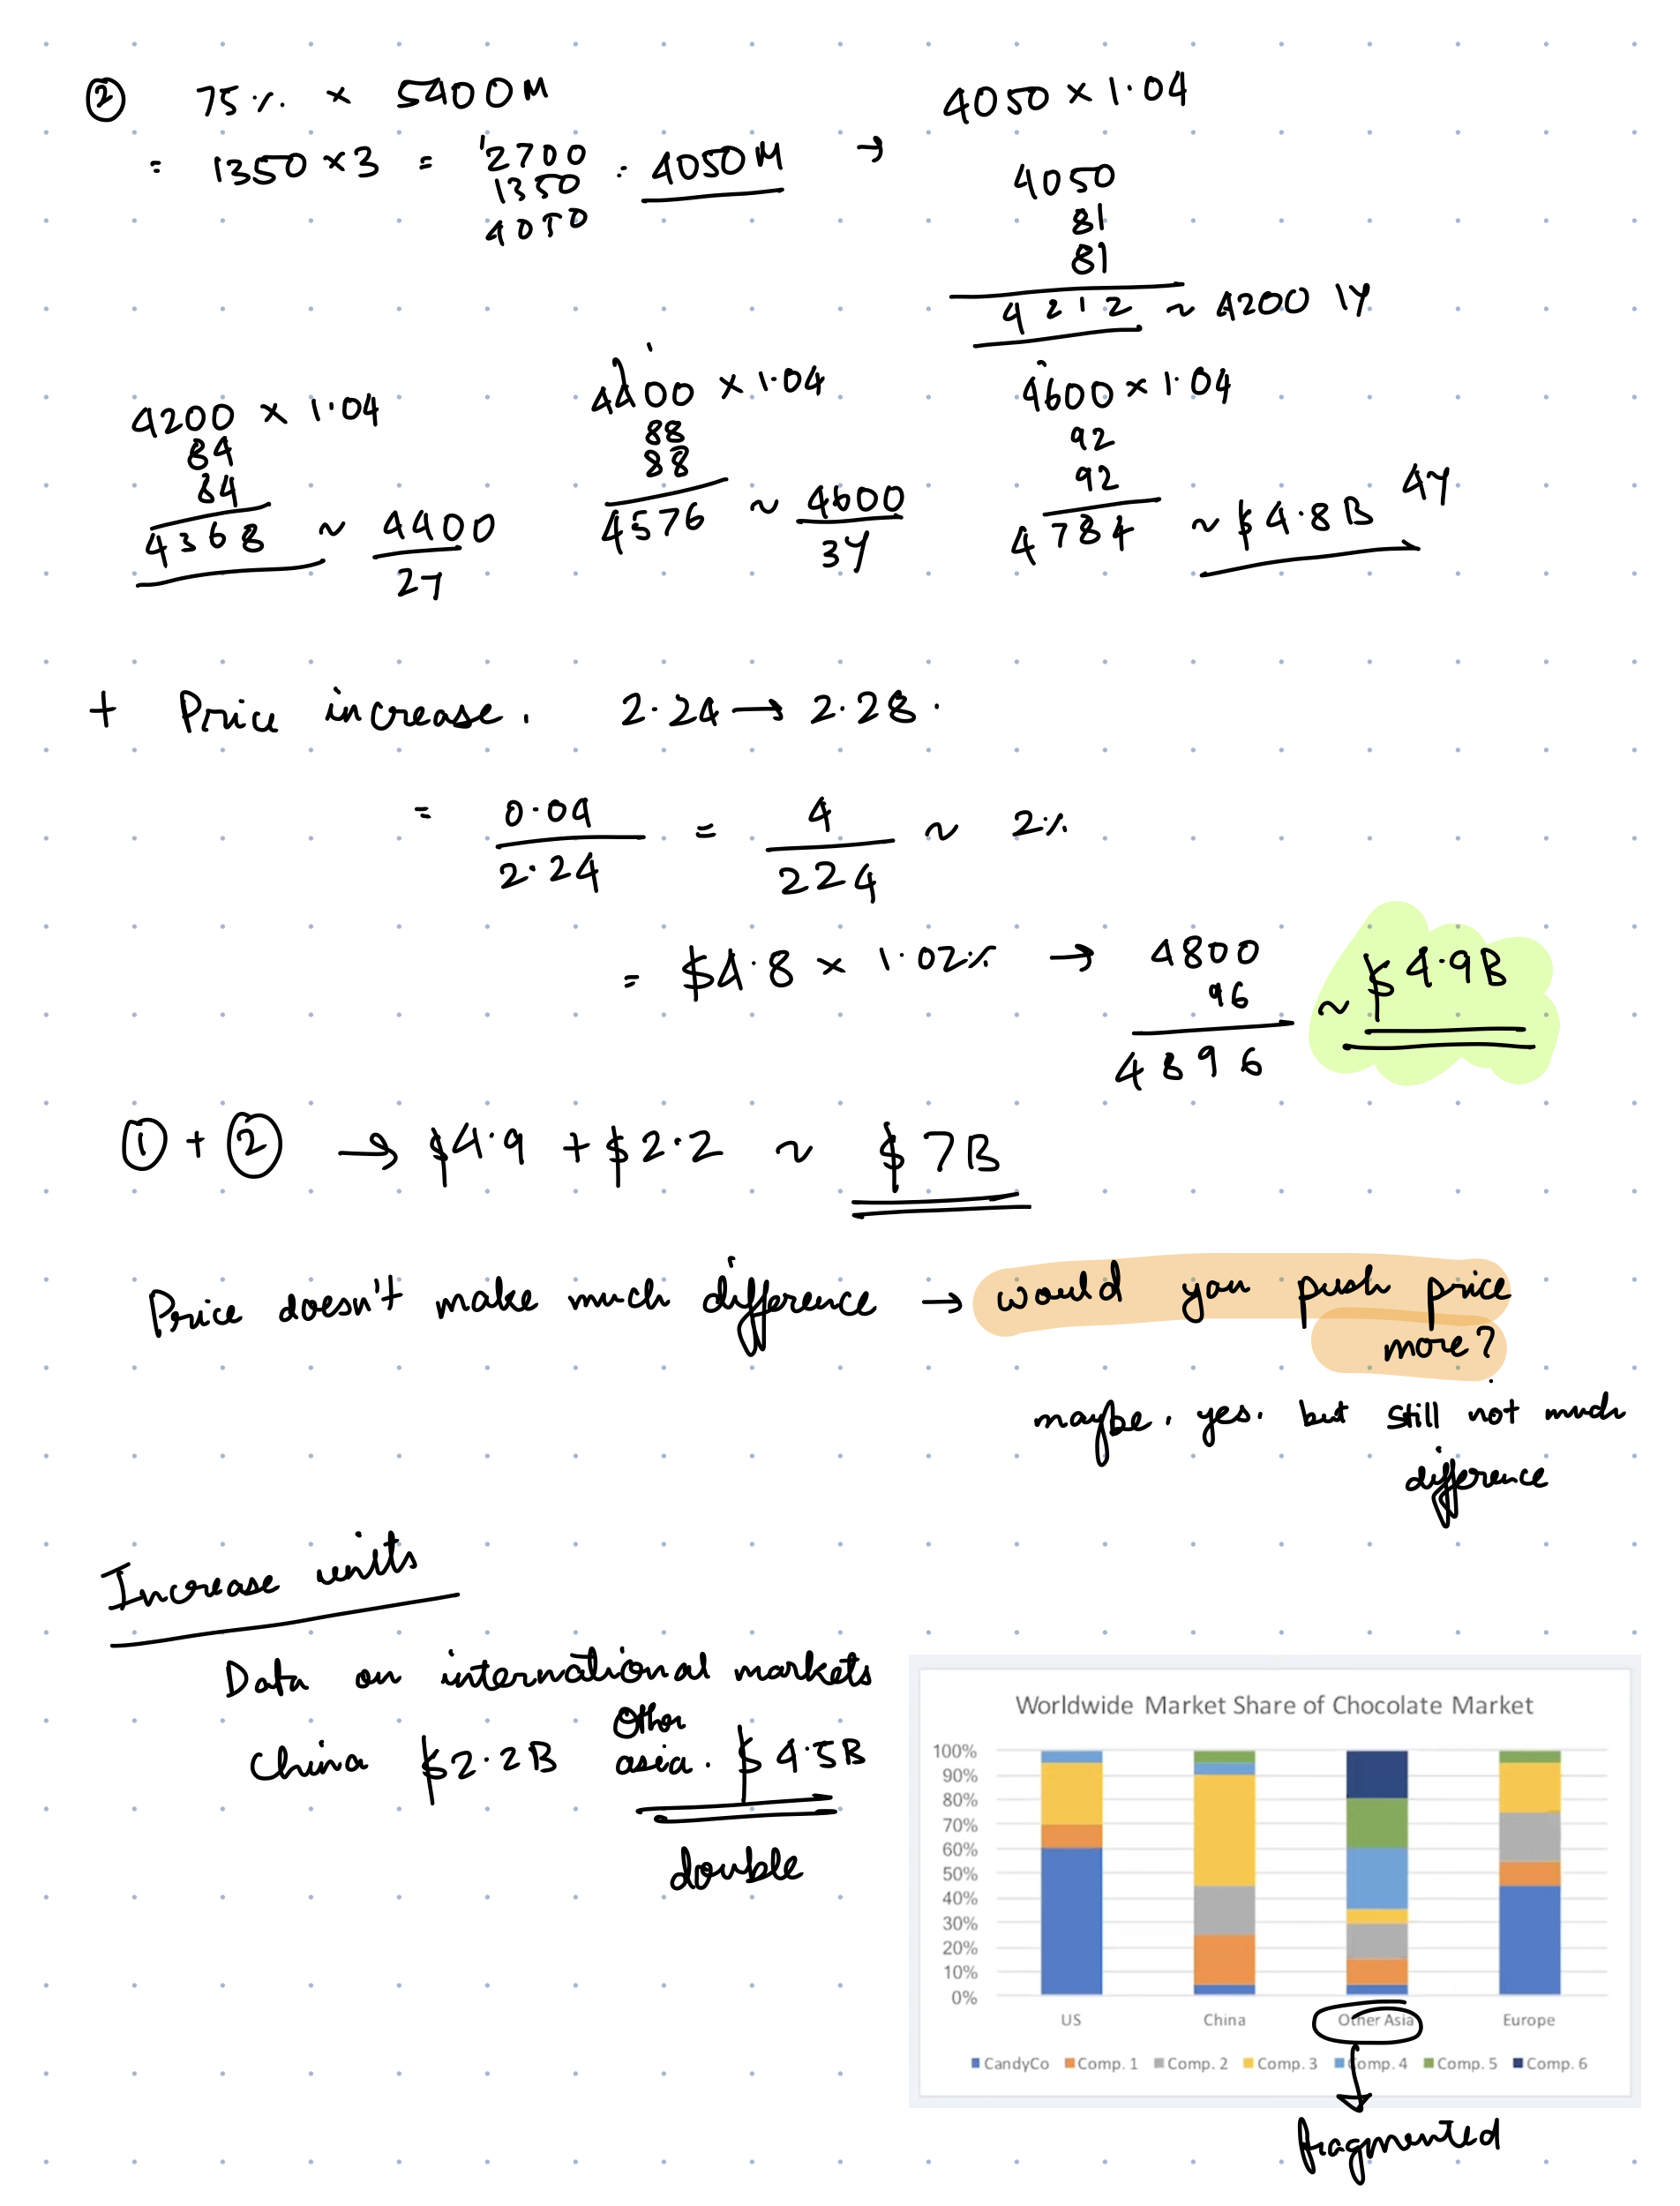 ② 75% × 5400M
= 1350 × 3 = 2700 = 4050M → 4050 × 1.04
1350
4050
4050
81
81
4212 ~ 4200 1Y
4200 × 1.04
84
84
4368 ~ 4400
2Y
4400 × 1.04
88
88
4576 ~ 4600
3Y
4600 × 1.04
92
92
4784 ~ $4.8B 4Y
+ Price increase. 2.24 → 2.28.
= 0.04 / 2.24 = 4 / 224 ~ 2%
= $4.8 × 1.02% → 4800
96
4896 ~ $4.9B
① + ② → $4.9 + $2.2 ~ $7B
Price doesn't make much difference → would you push price
more?
maybe. yes. but still not much
difference
Increase units
Data on international markets
China $2.2B Other asia. $4.5B
double
Worldwide Market Share of Chocolate Market
100%
90%
80%
70%
60%
50%
40%
30%
20%
10%
0%
US China Other Asia Europe
CandyCo Comp. 1 Comp. 2 Comp. 3 Comp. 4 Comp. 5 Comp. 6
fragmented